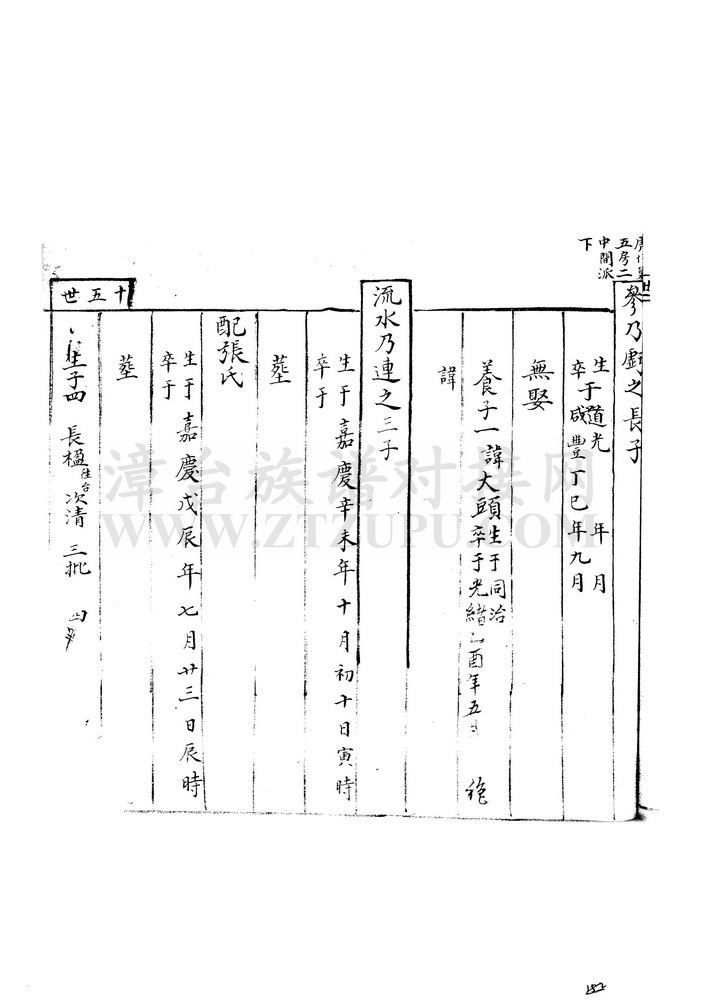 五房二
中間派
下
參乃䖏之長子
生于道光 年 月
卒于咸豐丁巳年九月
無娶
養子一 諱大頭 生于同治
卒于光緒乙酉年五月
諱
流水乃連之三子
生于嘉慶辛未年十月初十日寅時
卒于
墓
配張氏
生于嘉慶戊辰年七月廿三日辰時
卒于
墓
十五世
子四 長楹住台 次清 三批 四
漳台族谱对接网
WWW.ZTZUPU.COM